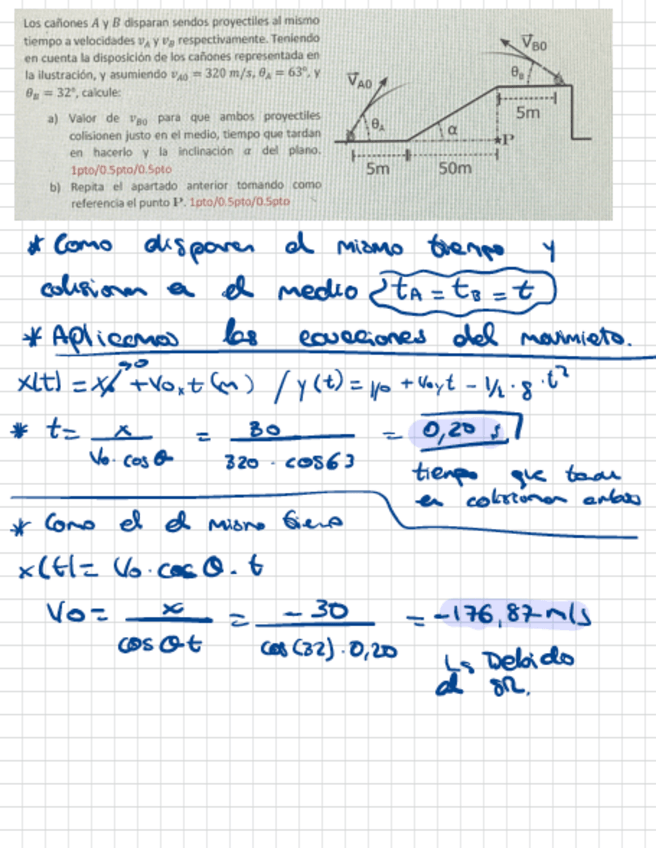 Los cañones A y B disparan sendos proyectiles al mismo
tiempo a velocidades v_A y v_B respectivamente. Teniendo
en cuenta la disposición de los cañones representada en
la ilustración, y asumiendo v_A0 = 320 m/s, θ_A = 63°, y
θ_B = 32°, calcule:
a) Valor de v_B0 para que ambos proyectiles
colisionen justo en el medio, tiempo que tardan
en hacerlo y la inclinación α del plano.
1pto/0.5pto/0.5pto
b) Repita el apartado anterior tomando como
referencia el punto P. 1pto/0.5pto/0.5pto
V_A0
θ_A
α
V_B0
θ_B
5m
P
5m
50m
* Como disparan al mismo tiempo y
colisionan en el medio t_A = t_B = t
* Aplicamos las ecuaciones del movimieto.
x(t) = x₀ + V₀ₓt (m) / y(t) = y₀ + V₀yt - 1/2 · g · t²
* t = x / V₀ · cos θ = 30 / 320 · cos63 = 0,20 s
tiempo que
en colisionar ambos
* Como el mismo
x(t) = V₀ · cos θ · t
V₀ = x / cos θ t = -30 / cos(32) · 0,20 = -176,87 m/s
↳ Debido
al SR.